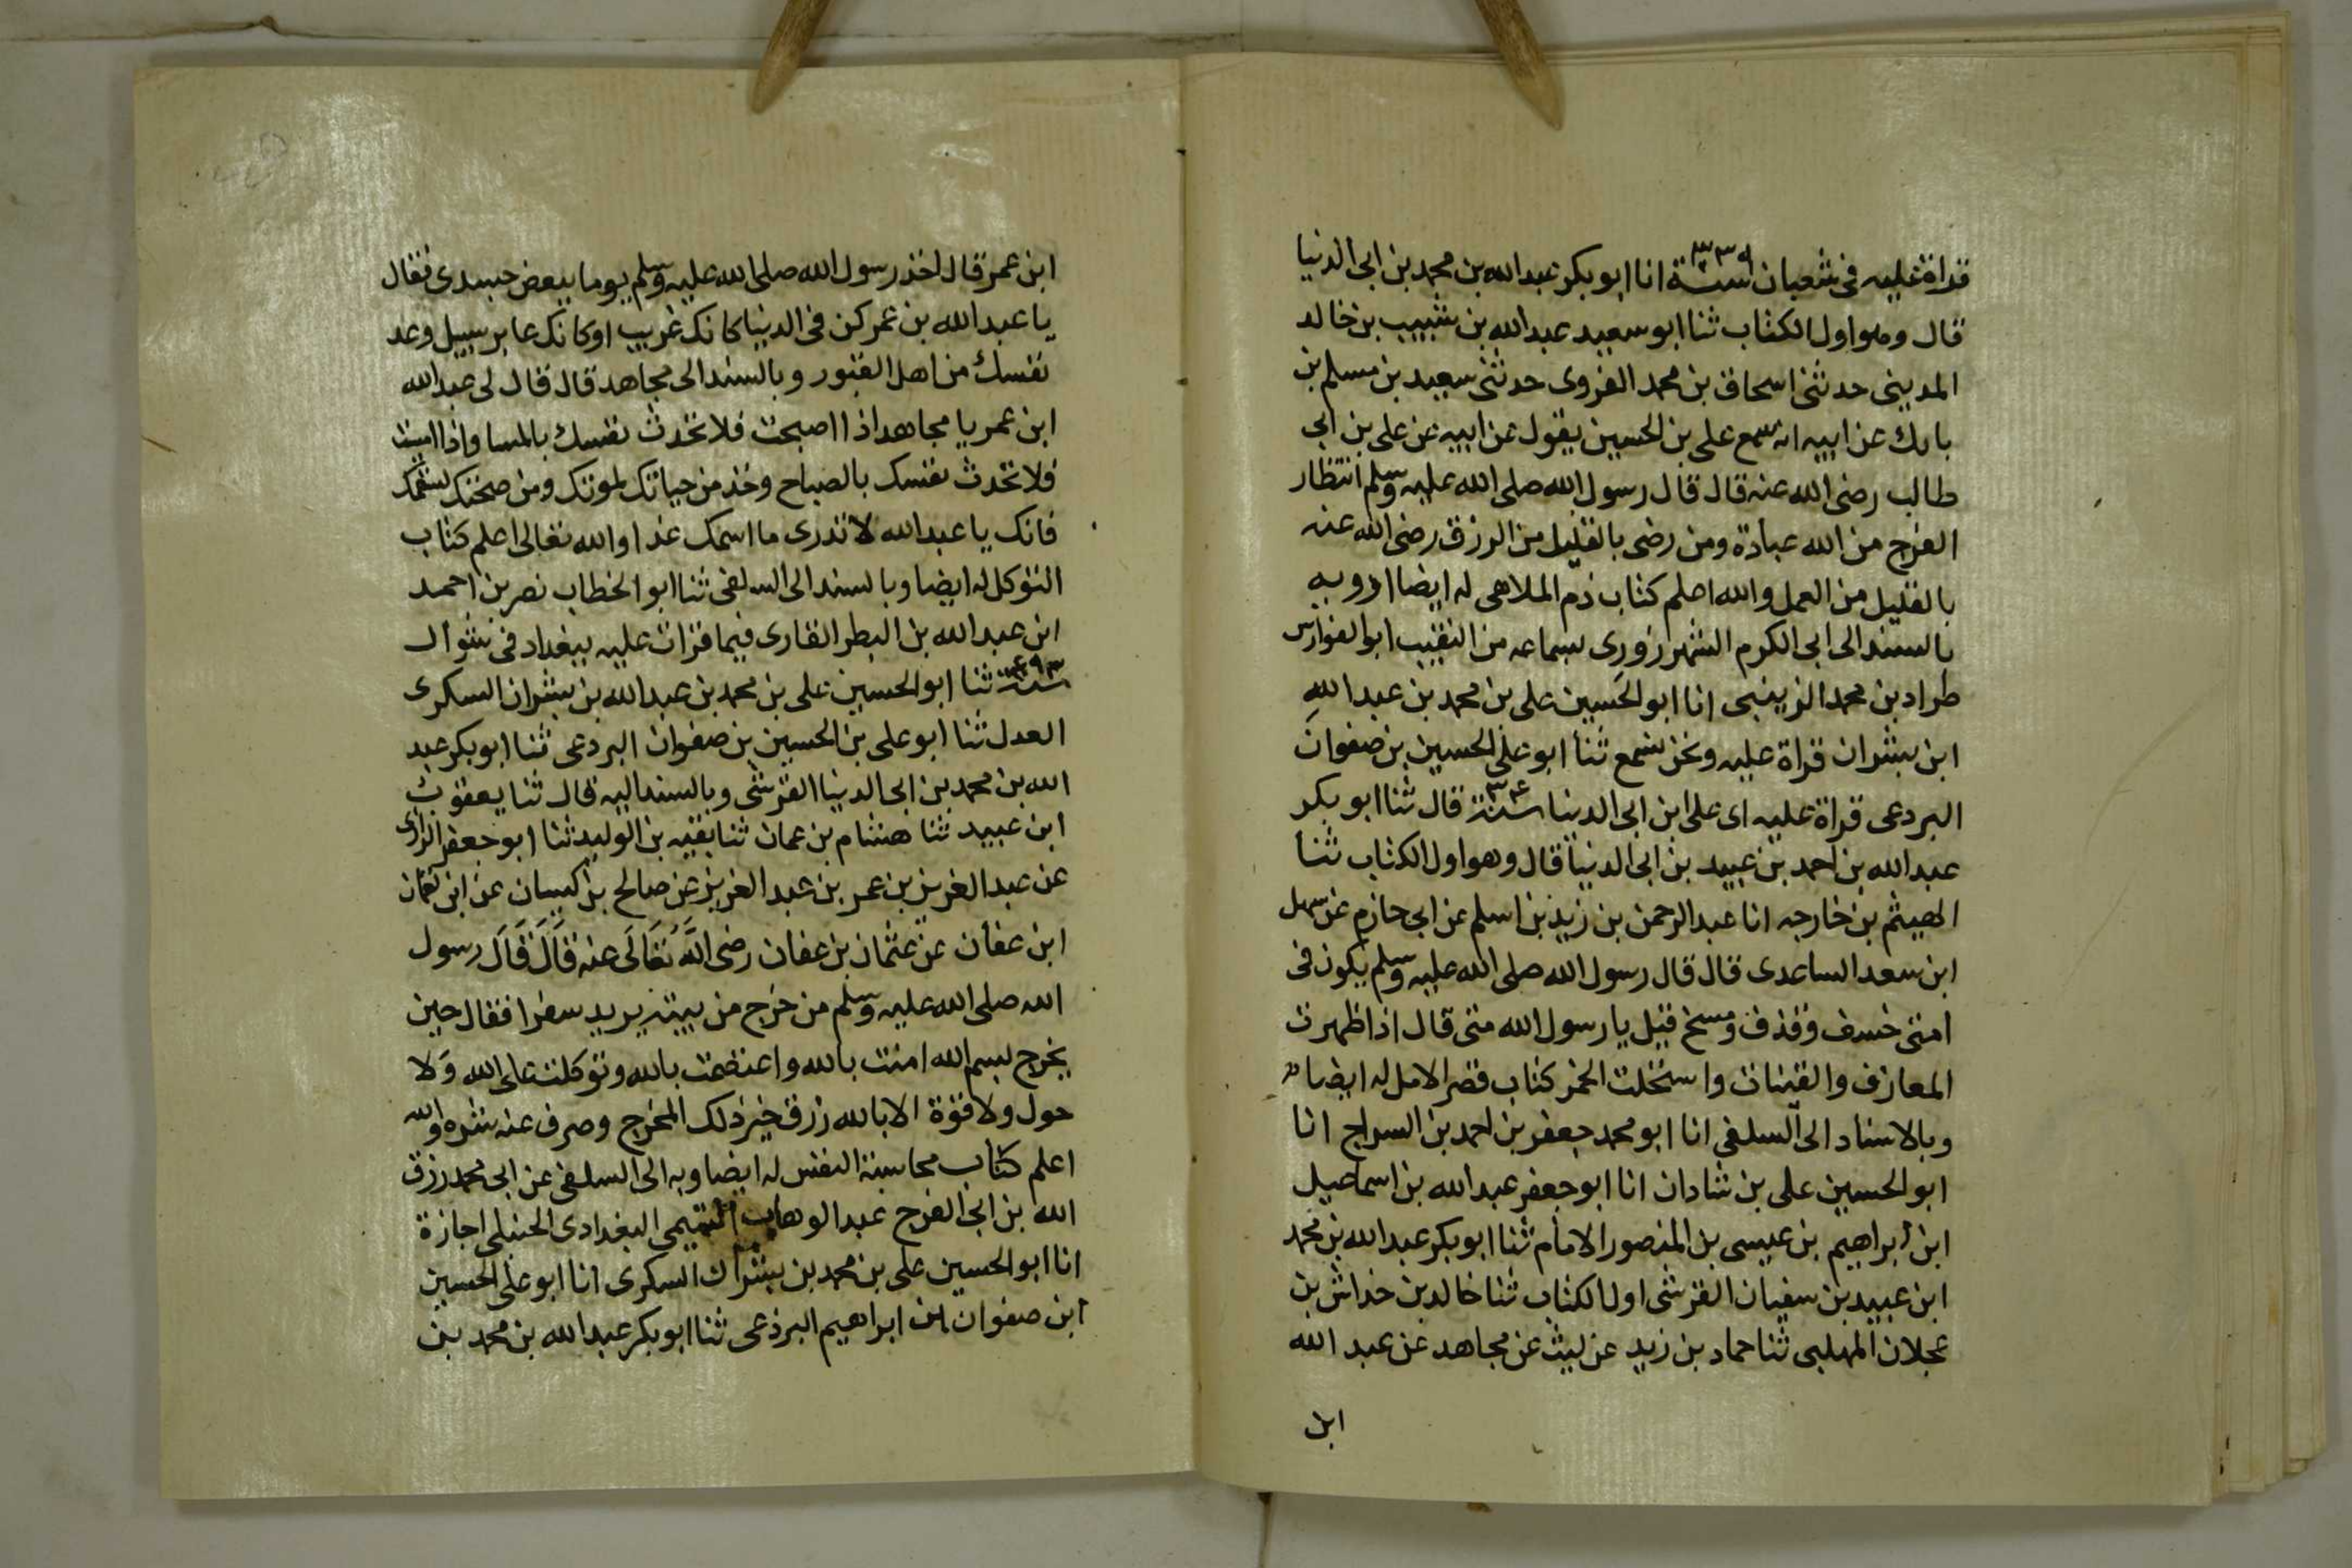 قراة عليه فى شعبان سنة ٣٣٩ انا ابو بكر عبد الله بن محمد بن ابى الدنيا
قال وهو اول الكتاب ثنا ابو سعيد عبد الله بن شبيب بن خالد
المدينى حدثنى اسحاق بن محمد الفروى حدثنى سعيد بن مسلم بن
بابك عن ابيه انه سمع على بن الحسين يقول عن ابيه عن على بن ابى
طالب رضى الله عنه قال قال رسول الله صلى الله عليه وسلم انتظار
الفرج من الله عبادة ومن رضى بالقليل من الرزق رضى الله عنه
بالقليل من العمل والله اعلم كتاب ذم الملاهى له ايضا ارويه
بالسند الى ابى الكرم الشهرزورى بسماعه من النقيب ابو الفوارس
طراد بن محمد الزينبى انا ابو الحسين على بن محمد بن عبد الله
ابن بشران قراة عليه ونحن نسمع ثنا ابو على الحسين بن صفوان
البردعى قراة عليه اى على ابن ابى الدنيا سنة ٣٣٤ قال ثنا ابو بكر
عبد الله بن احمد بن عبيد بن ابى الدنيا قال وهو اول الكتاب ثنا
الهيثم بن خارجه انا عبد الرحمن بن زيد بن اسلم عن ابى حازم عن سهل
ابن سعد الساعدى قال قال رسول الله صلى الله عليه وسلم يكون فى
امتى خسف وقذف ومسخ قيل يا رسول الله متى قال اذا ظهرت
المعازف والقينات واستحلت الخمر كتاب قصر الامل له ايضا
وبالاسناد الى السلفى انا ابو محمد جعفر بن احمد بن السراج انا
ابو الحسين على بن شادان انا ابو جعفر عبد الله بن اسماعيل
ابن ابراهيم بن عيسى بن المنصور الامام ثنا ابو بكر عبد الله بن محمد
ابن عبيد بن سفيان القرشى اول الكتاب ثنا خالد بن خداش بن
عجلان المهلبى ثنا حماد بن زيد عن ليث عن مجاهد عن عبد الله
ابن
ابن عمر قال اخذ رسول الله صلى الله عليه وسلم يوما ببعض جسدى فقال
يا عبد الله بن عمر كن فى الدنيا كانك غريب او كانك عابر سبيل وعد
نفسك من اهل القبور وبالسند الى مجاهد قال قال لى عبد الله
ابن عمر يا مجاهد اذا اصبحت فلا تحدث نفسك بالمسا واذا امسيت
فلا تحدث نفسك بالصباح وخذ من حياتك لموتك ومن صحتك لسقمك
فانك يا عبد الله لا تدرى ما اسمك غدا والله تعالى اعلم كتاب
التوكل له ايضا وبالسند الى السلفى ثنا ابو الخطاب نصر بن احمد
ابن عبد الله بن البطر القارى فيما قرات عليه ببغداد فى شوال
سنة ٤٩٣ ثنا ابو الحسين على بن محمد بن عبد الله بن بشران السكرى
العدل ثنا ابو على بن الحسين بن صفوان البردعى ثنا ابو بكر عبد
الله بن محمد بن ابى الدنيا القرشى وبالسند اليه قال ثنا يعقوب
ابن عبيد ثنا هشام بن عمان ثنا بقيه بن الوليد ثنا ابو جعفر الرازى
عن عبد العزيز بن عمر بن عبد العزيز عن صالح بن كيسان عن ابن لعمان
ابن عفان عن عثمان بن عفان رضى اللَّه تعَالَى عنه قَالَ قَالَ رسول
الله صلى الله عليه وسلم من خرج من بيته يريد سفرا فقال حين
يخرج بسم الله امنت بالله واعتصمت بالله وتوكلت على الله وَلا
حول ولا قوة الا بالله رزق خير ذلك المخرج وصرف عنه شره والله
اعلم كتاب محاسبة النفس له ايضا وبه الى السلفى عن ابى محمد رزق
الله بن ابى الفرج عبد الوهاب التميمى البغدادى الحنبلى اجازة
انا ابو الحسين على بن محمد بن بشران السكرى انا ابو على الحسين
ابن صفوان ابن ابراهيم البرذعى ثنا ابو بكر عبد الله بن محمد بن